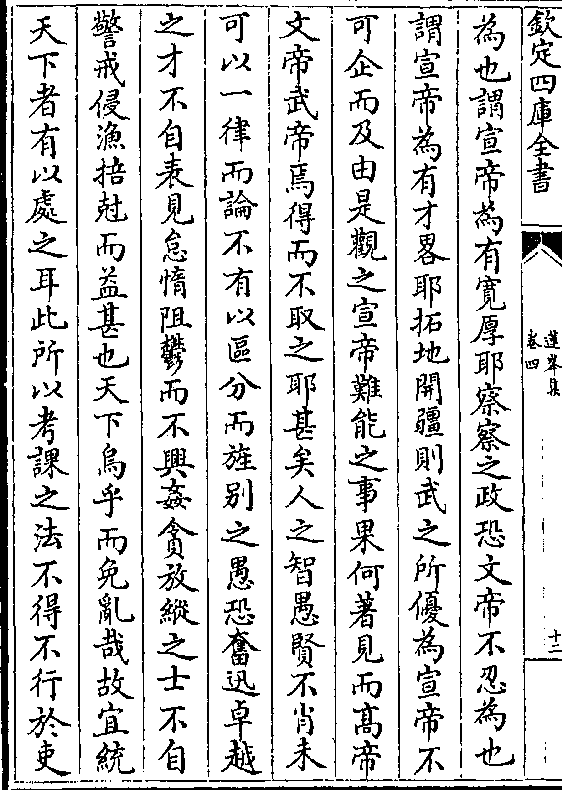 欽定四庫全書
蓮峯集
卷四
十二
為也謂宣帝為有寛厚耶察察之政恐文帝不忍為也
謂宣帝為有才畧耶拓地開疆則武之所優為宣帝不
可企而及由是觀之宣帝難能之事果何著見而髙帝
文帝武帝焉得而不取之耶甚矣人之智愚賢不肖未
可以一律而論不有以區分而旌别之愚恐奮迅卓越
之才不自表見怠惰阻鬱而不興姦貪放縱之士不自
警戒侵漁掊尅而益甚也天下烏乎而免亂哉故宜統
天下者有以處之耳此所以考課之法不得不行於吏